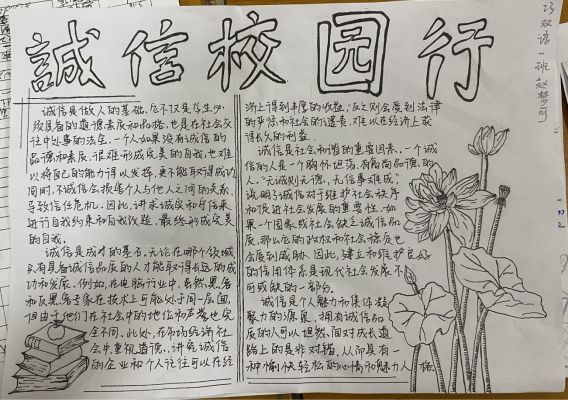 誠信校园行
23双语一班 赵梦可
诚信是做人的基础,它不仅是学生必
须具备的道德素质和品格,也是在社会交
往中处事的法宝。一个人如果没有诚信的
品德和素质,很难形成完美的自我,也难
以将自己的能力得以发挥,更不能取得成功
同时,不诚信会损害个人与他人之间的关系,
导致信任危机,因此,讲求诚实和守信来
进行自我约束和自我改进,最终形成完美
的自我。
诚信是成才的基石,无论在哪个领域,
只有具备诚信品质的人才能取得长远的成
功和发展。例如,在电脑行业中,虽然,黑客
和反黑客专家在技术上可能处于同一层面,
但由于他们在社会中的地位和声誉也完
全不同。此外,在市场经济社
会中,重视道德、讲究诚信
的企业和个人往往可以在经
济上得到丰厚的收益;反之则会受到法律
的严惩和社会的谴责,难以在经济上获
得长久的利益。
诚信是社会和谐的重要因素,一个诚
信的人是一个胸怀坦荡、有高尚品德的
人,“无诚则无德,无信事难成”,
说明了诚信对于维护社会秩序
和促进社会发展的重要性。如
果一个国家或社会缺乏诚信品
质,那么它的政权和社会稳定也
会受到威胁。因此,建立和维护良好
的信用体系是现代社会发展不
可或缺的一部分。
诚信是个人魅力和集体凝
聚力的源泉,拥有诚信品
质的人可以坦然面对成长道
路上的是非对错,从而具有一
种愉快轻松的心情和魅力人格